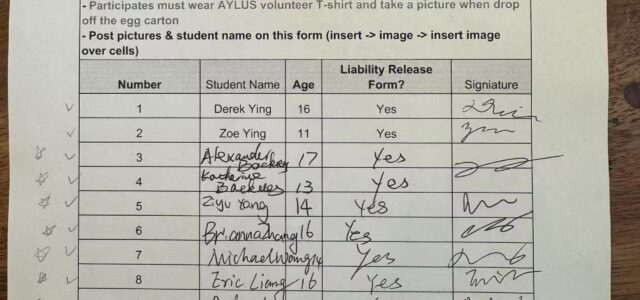 - Participates must wear AYLUS volunteer T-shirt and take a picture when drop
off the egg carton
- Post pictures & student name on this form (insert -> image -> insert image
over cells)
Number Student Name Age Liability Release Form? Signiature
1 Derek Ying 16 Yes
2 Zoe Ying 11 Yes
3 Alexander 17 Yes
4 Katherine 13 Yes
5 Ziyu Yang 14 Yes
6 Brianna Zhang 16 Yes
7 Michael Wang 14 Yes
8 Eric Liang 16 Yes